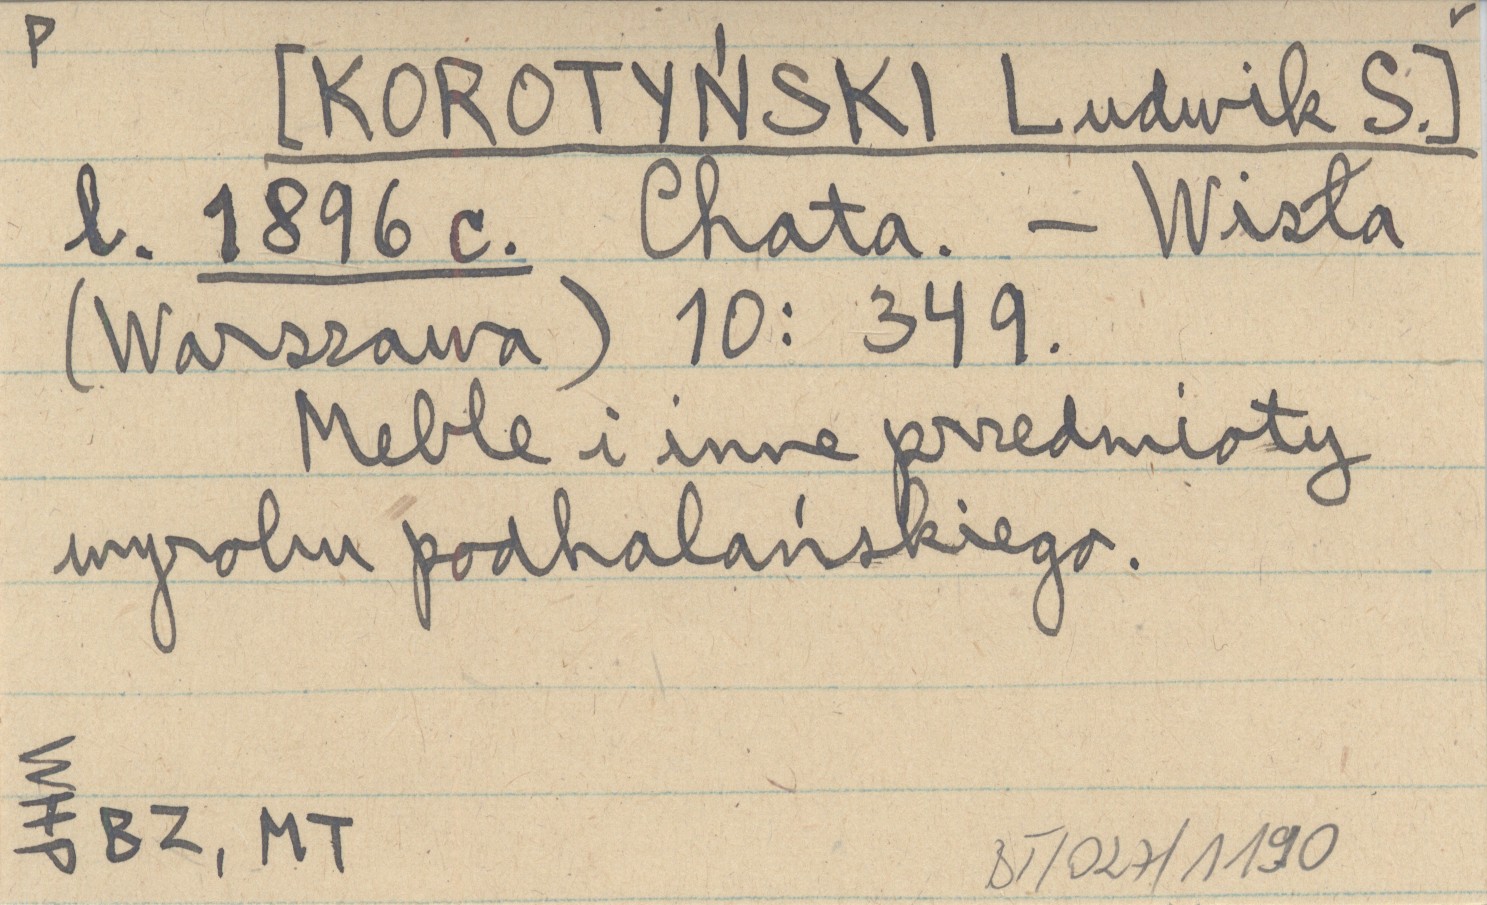 P
[KOROTYŃSKI Ludwik S.]
l. 1896 c. Chata. – Wisła
(Warszawa) 10: 349.
Meble i inne przedmioty
wyrobu podhalańskiego.
BZ, MT
BT/027/1190